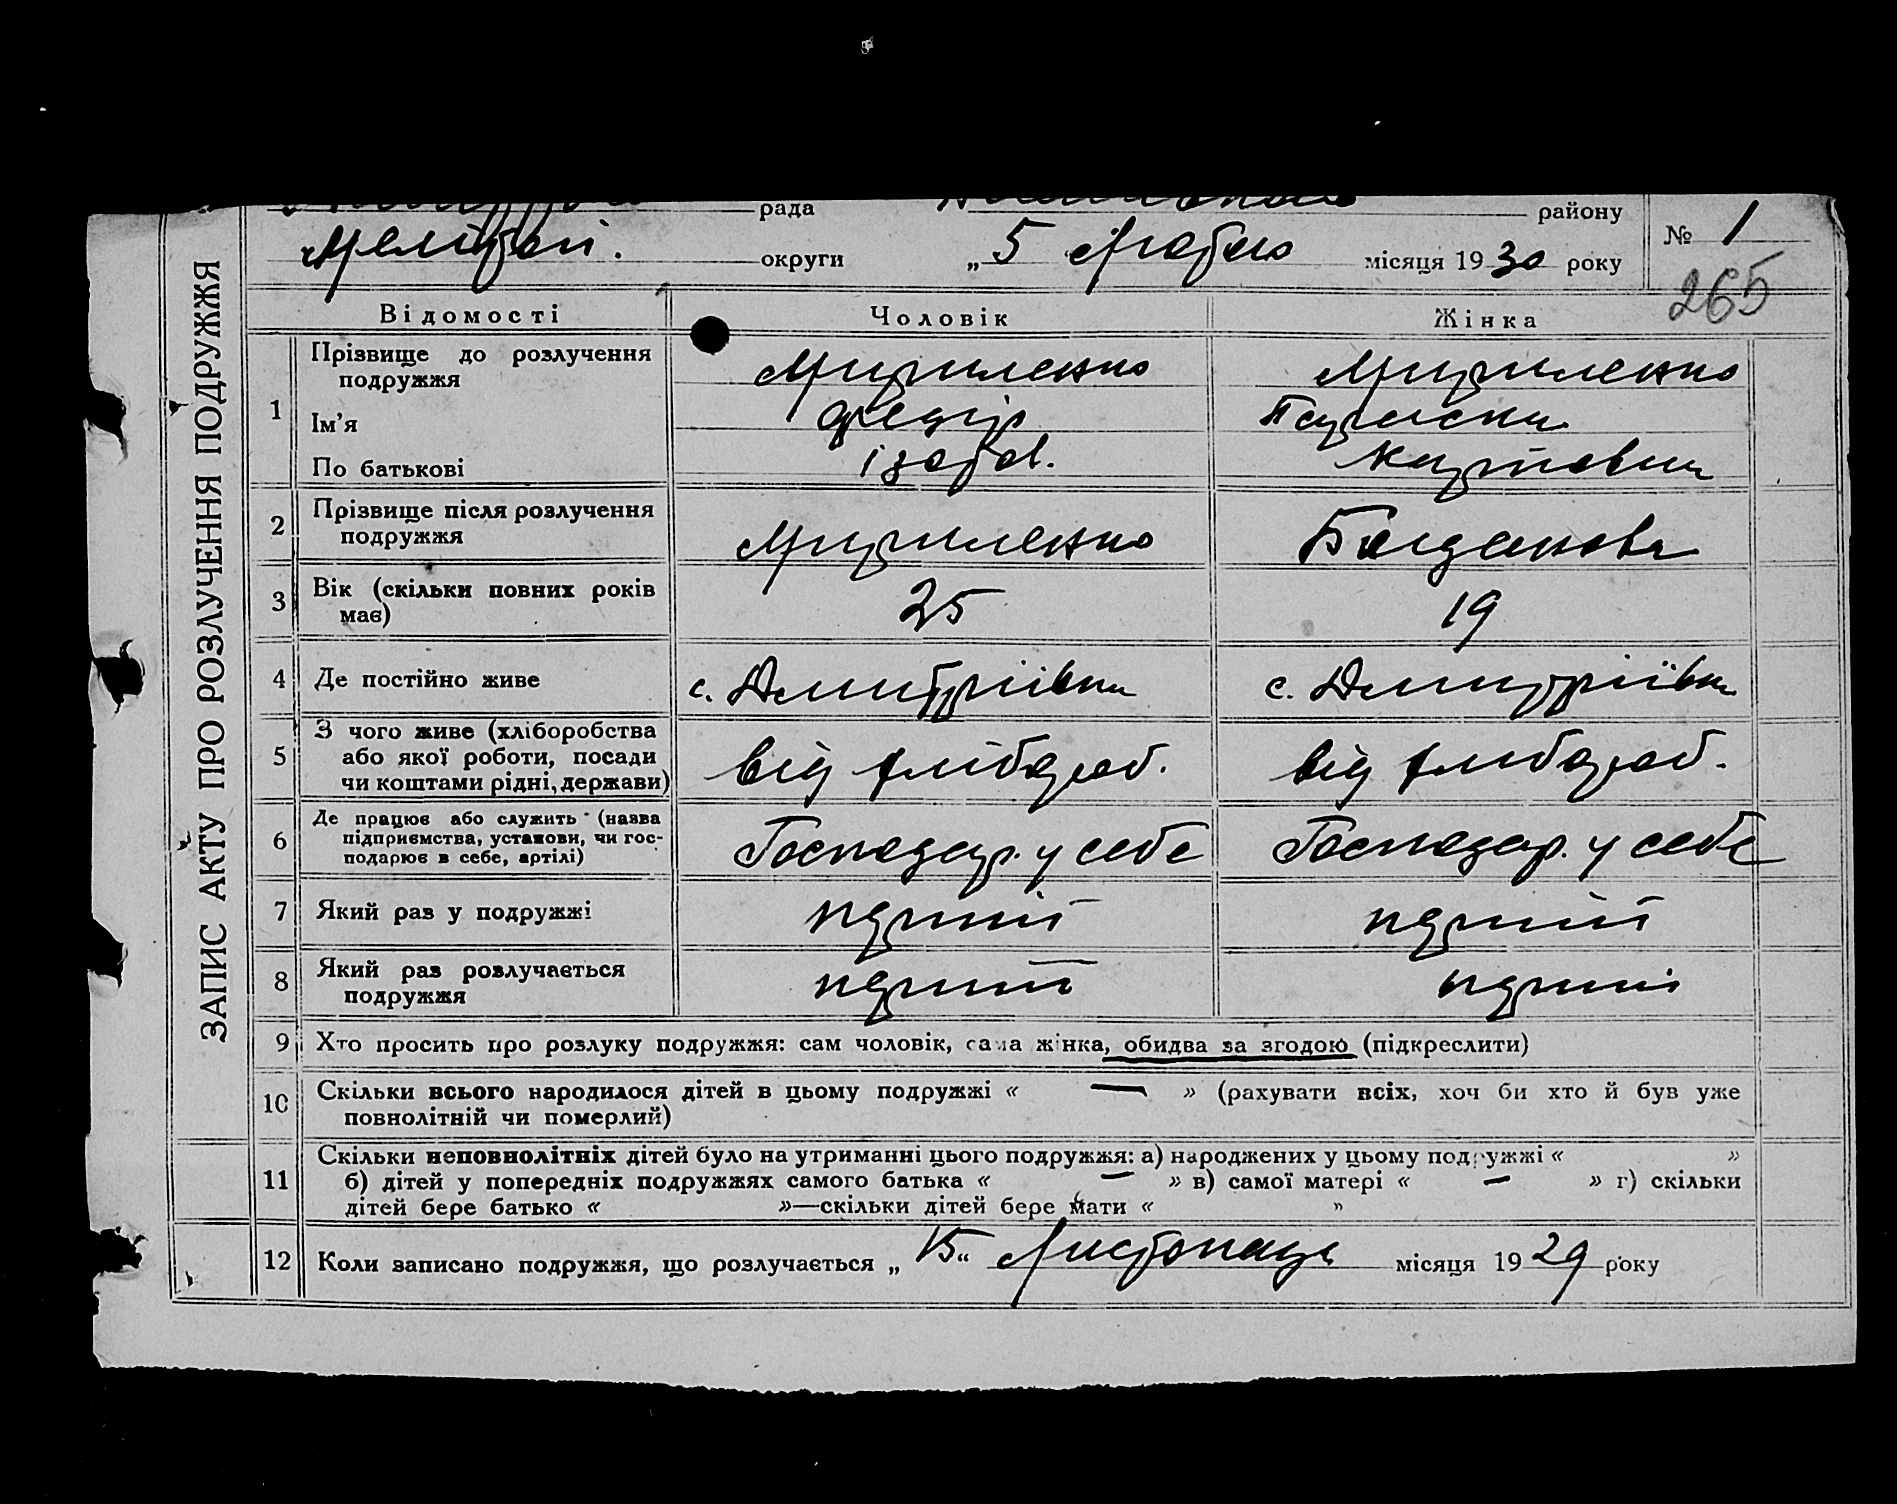 рада району № 1
округи „ 5 Лютого місяця 1930 року
265
ЗАПИС АКТУ ПРО РОЗЛУЧЕННЯ ПОДРУЖЖЯ
Відомості Чоловік Жінка
1 Прізвище до розлучення
подружжя
Ім’я Федір
По батькові
2 Прізвище після розлучення
подружжя Богданова
3 Вік (скільки повних років
має) 25 19
4 Де постійно живе с. Дмитріївка с. Дмитріївка
5 З чого живе (хліборобства
або якої роботи, посади
чи коштами рідні, держави) від хлібороб. від хлібороб.
6 Де працює або служить (назва
підприємства, установи, чи гос-
подарює в себе, артілі) Господар. у себе Господар. у себе
7 Який раз у подружжі перший перший
8 Який раз розлучається
подружжя перший перший
9 Хто просить про розлуку подружжя: сам чоловік, сама жінка, обидва за згодою (підкреслити)
10 Скільки всього народилося дітей в цьому подружжі « — » (рахувати всіх, хоч би хто й був уже
повнолітній чи померлий)
11 Скільки неповнолітніх дітей було на утриманні цього подружжя: а) народжених у цьому подружжі « »
б) дітей у попередніх подружжях самого батька « — » в) самої матері « — » г) скільки
дітей бере батько « »—скільки дітей бере мати « »
12 Коли записано подружжя, що розлучається „ 15 “ Листопада місяця 1929 року